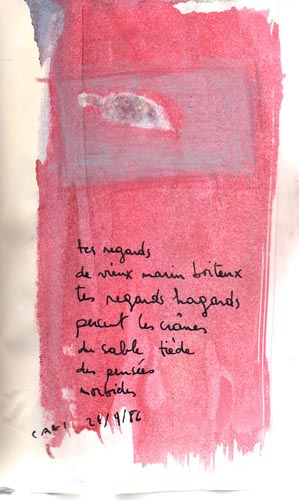 tes regards
de vieux marin boiteux
tes regards hagards
percent les crânes
du sable tiède
des pensées
morbides
24/9/86